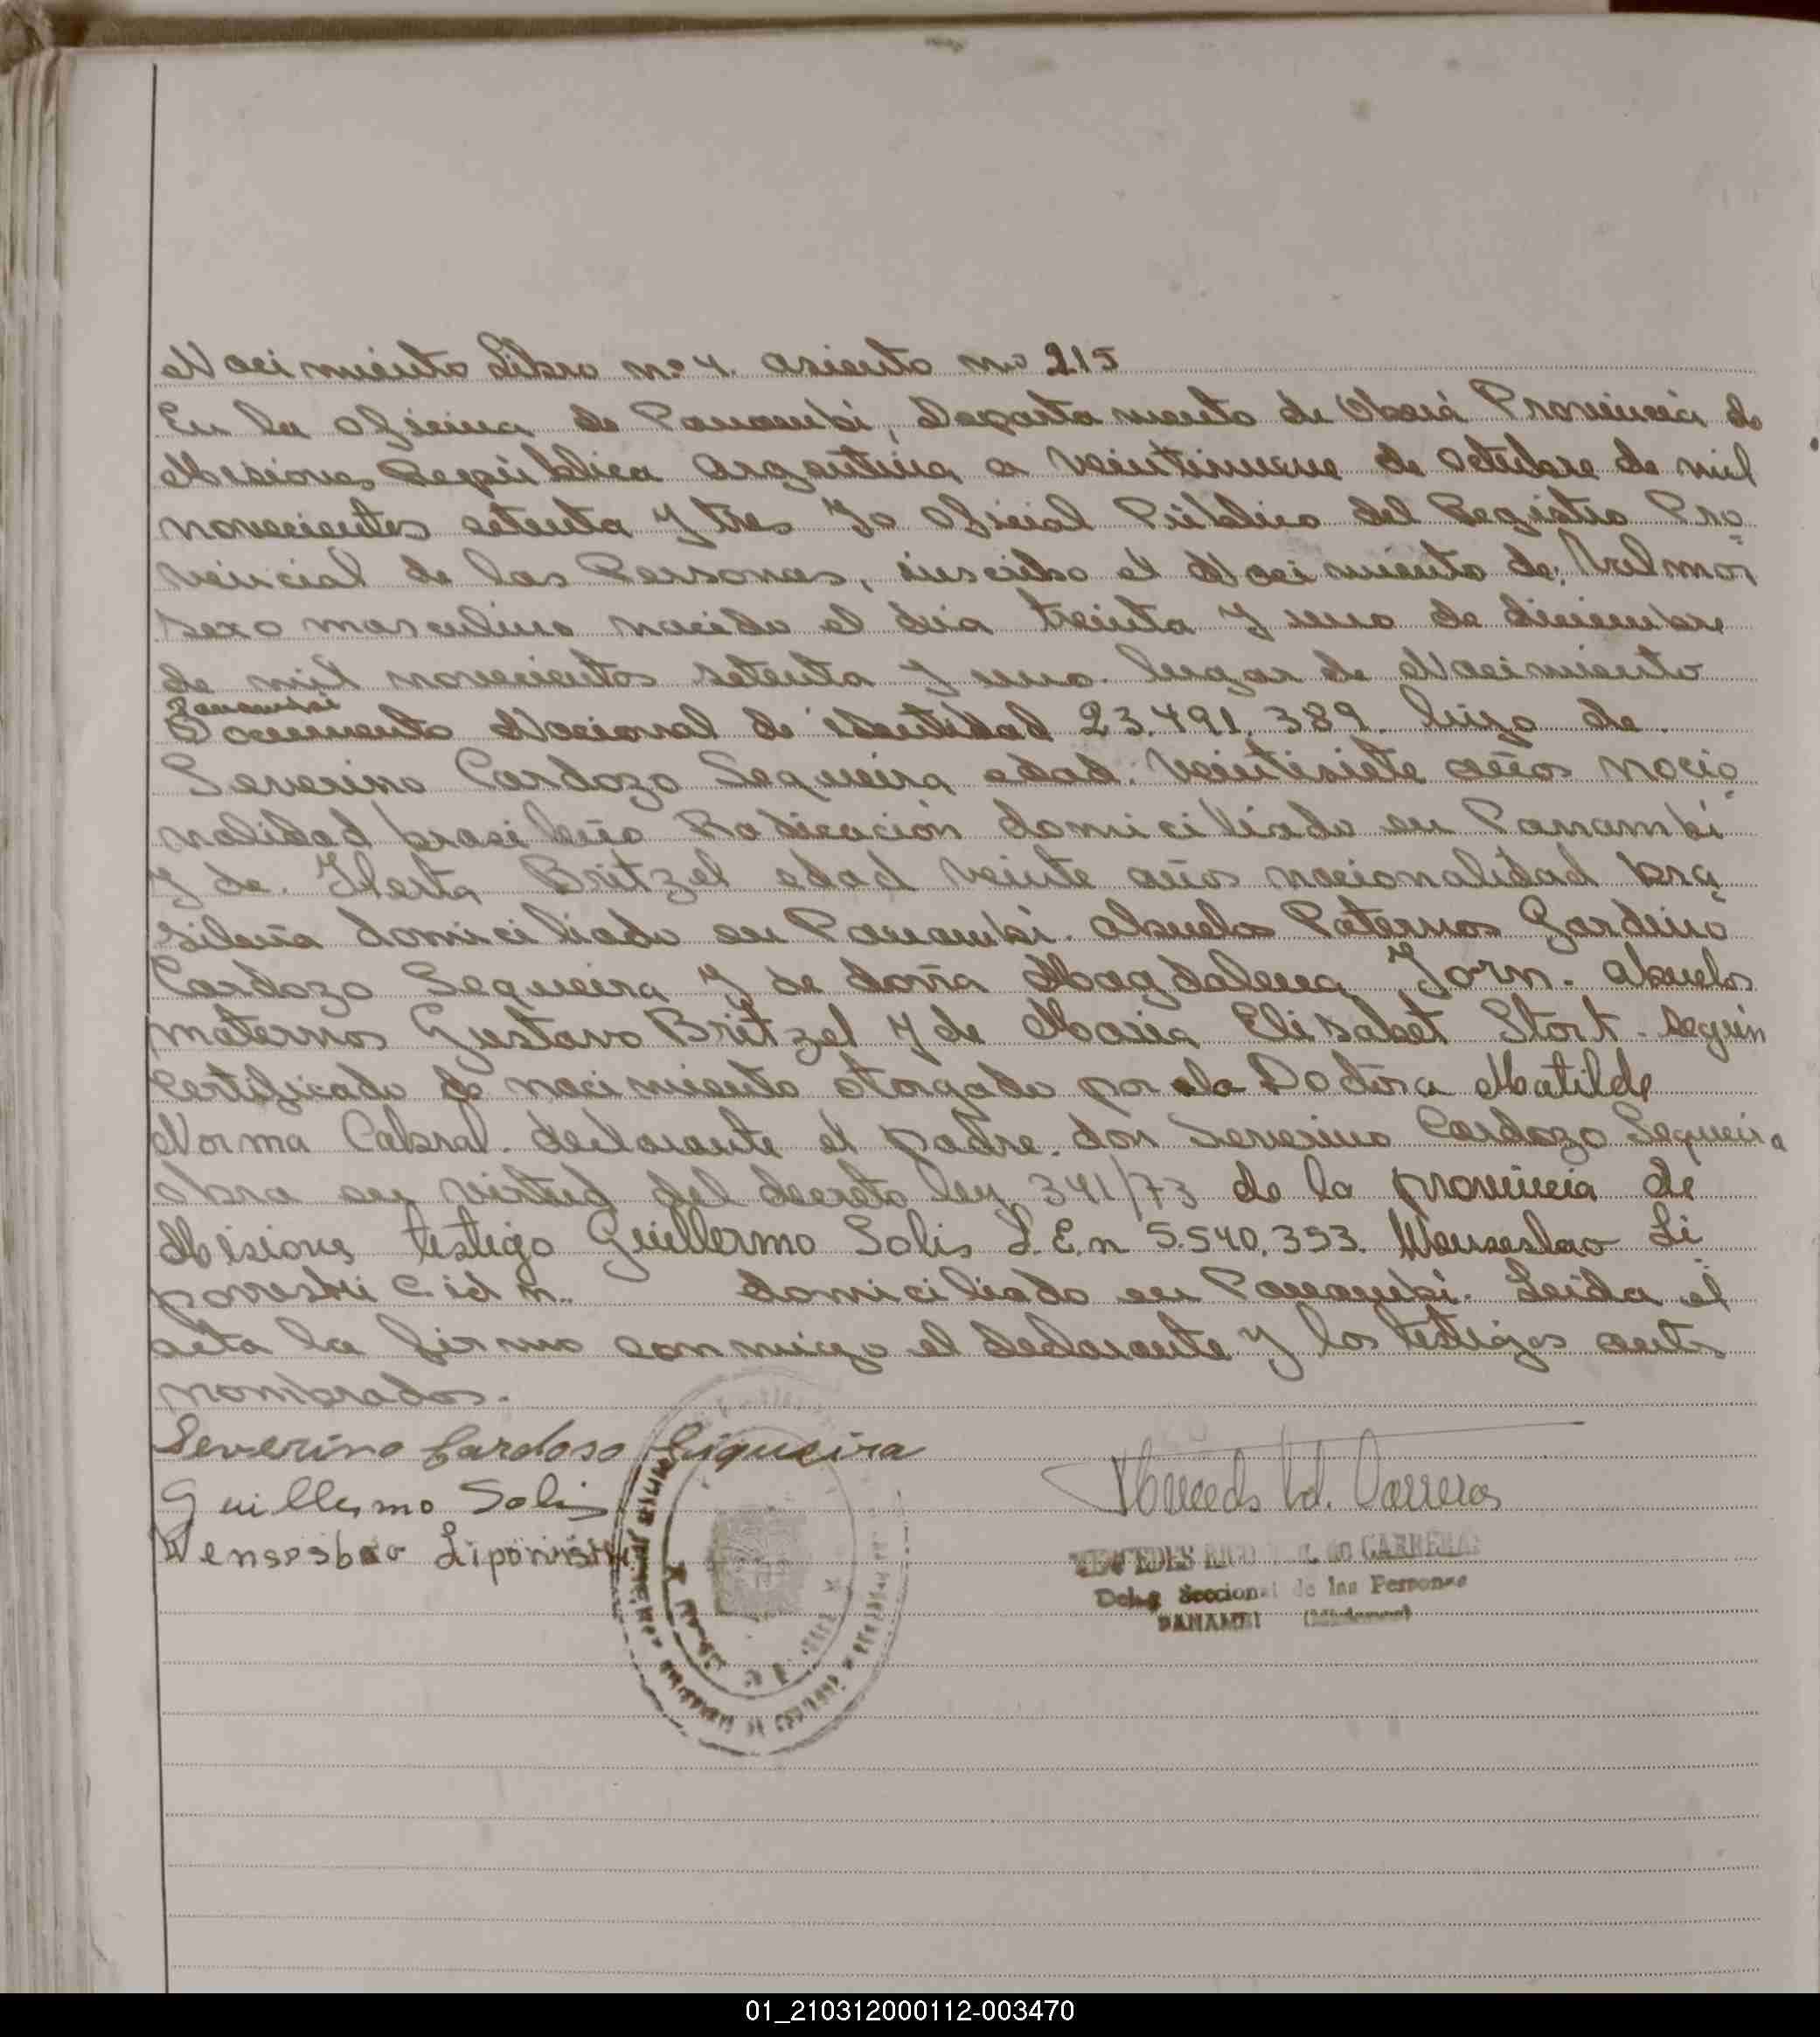 Nacimiento Libro nº 4. asiento nº 215
En la Oficina de Panambi, Departamento de Oberá Provincia de
Misiones Republica Argentina a veintinueve de Octubre de mil
novecientos setenta y tres Yo Oficial Público del Registro Pro
vincial de las Personas, inscribo el Nacimiento de: Valmor
sexo masculino nacido el dia treinta y uno de diciembre
de mil novecientos setenta y uno. lugar de Nacimiento
Panambi
Documento Nacional de identidad 23.491.389. hijo de
Severino Cardozo Sequeira edad: veintisiete años nacio
nalidad brasileño Radicación domiciliado en Panambi
y de. Herta Britzel edad veinte años nacionalidad bra
sileña domiciliado en Panambi. abuelos Paternos Gardino
Cardozo Sequeira y de doña Magdalena Jorn. abuelos
maternos Gustavo Britzel y de Maria Elisabet Stort. según
Certificado de nacimiento otorgado por la Doctora Matilde
Norma Cabral. declarante el padre. don Severino Cardozo Sequeira
obra en virtud del decreto ley 341/73 de la provincia de
Misiones testigo Guillermo Solis L.E.n 5.540.353. Wenseslao Li
povvski C.id n. domiciliado en Panambi. Leida el
acta la firmo conmigo el declarante y los testigos antes
nombrados.
Severino Cardoso Siqueira
Guillermo Solis
Wenseslao Lipovvski
MERCEDES de CARRERAS
Deleg Seccional de las Personas
PANAMBI (Misiones)
01_210312000112-003470